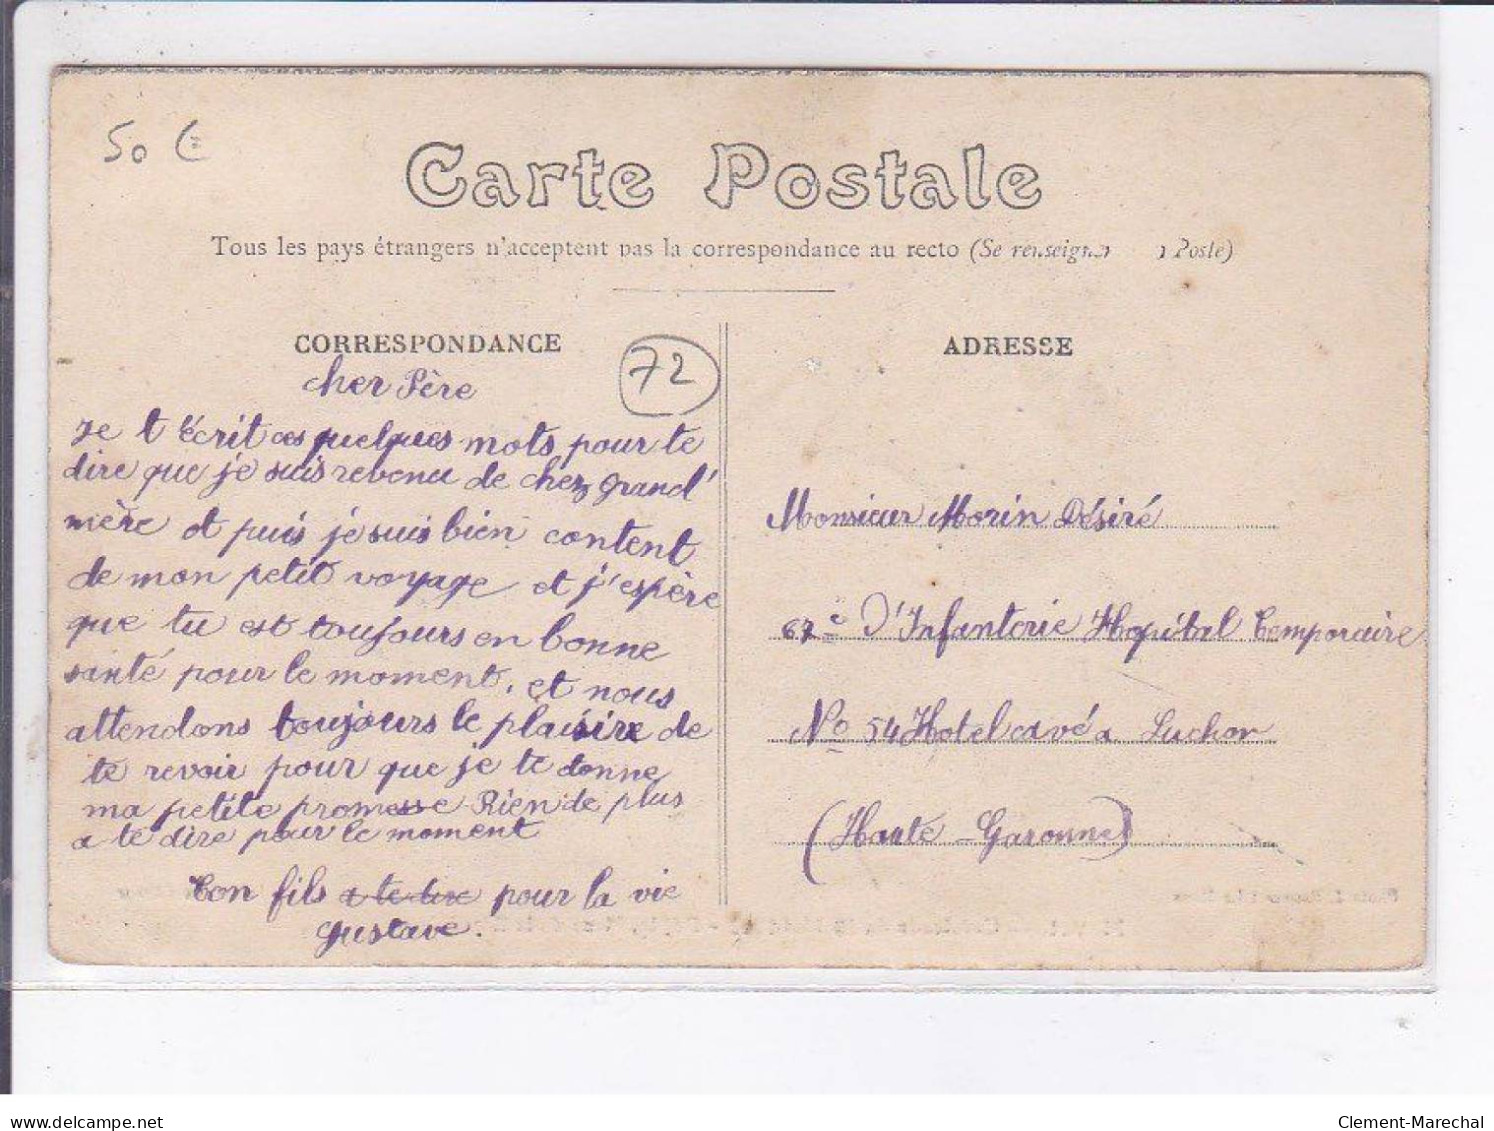 50 €
Carte Postale
Tous les pays étrangers n'acceptent pas la correspondance au recto (Se renseigner Poste)
CORRESPONDANCE
72
cher Père
Je t'écrit ces quelques mots pour te
dire que je suis revenu de chez grand'
mère et puis je suis bien content
de mon petit voyage et j'espère
que tu est toujours en bonne
santé pour le moment, et nous
attendons toujours le plaisire de
te revoir pour que je te donne
ma petite promesse Rien de plus
a te dire pour le moment
Ton fils a te dire pour la vie
Gustave.
ADRESSE
Monsieur Morin Désiré
67e D'Infanterie Hopital Temporaire
No 54 Hotel cavé a Luchon
(Haute-Garonne)
delcampe.net
Clement-Marechal